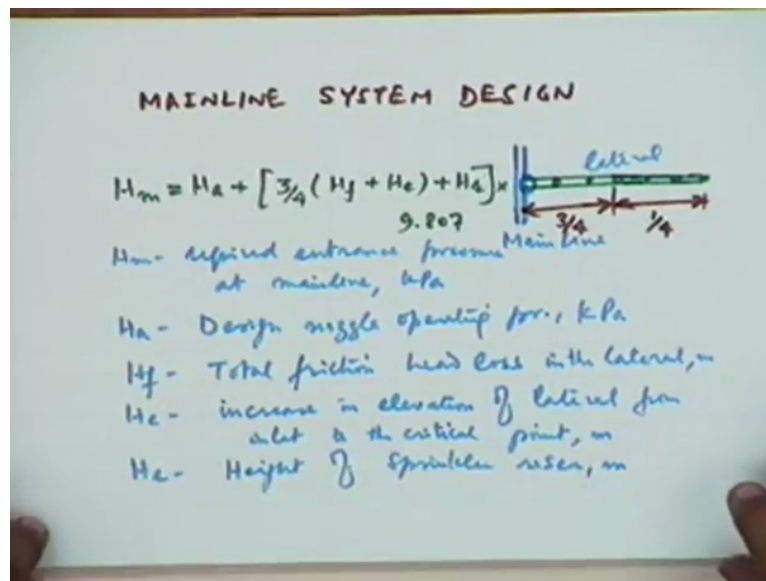 MAINLINE SYSTEM DESIGN
Hm = Ha + [3/4 (Hf + He) + Hr] x
9.807
lateral
3/4 1/4
Main line
Hm - required entrance pressure
at mainline, kPa
Ha - Design nozzle operating pr., kPa
Hf - Total friction head loss in the lateral, m
He - increase in elevation of lateral from
inlet to the critical point, m
- Height of sprinkler riser, m